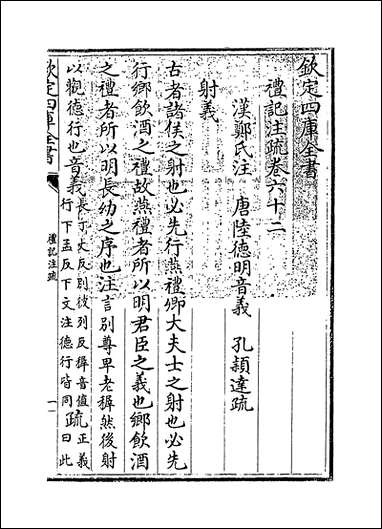 欽定四庫全書
禮記注疏卷六十二
漢鄭氏注 唐陸德明音義 孔穎達疏
射義
古者諸侯之射也必先行燕禮卿大夫士之射也必先
行鄉飲酒之禮故燕禮者所以明君臣之義也鄉飲酒
之禮者所以明長幼之序也注言别尊卑老穉然後射
以觀德行也音義長丁丈反别彼列反穉音值
行下孟反下文注德行皆同疏正義
曰此
欽定四庫全書
禮記注疏
一